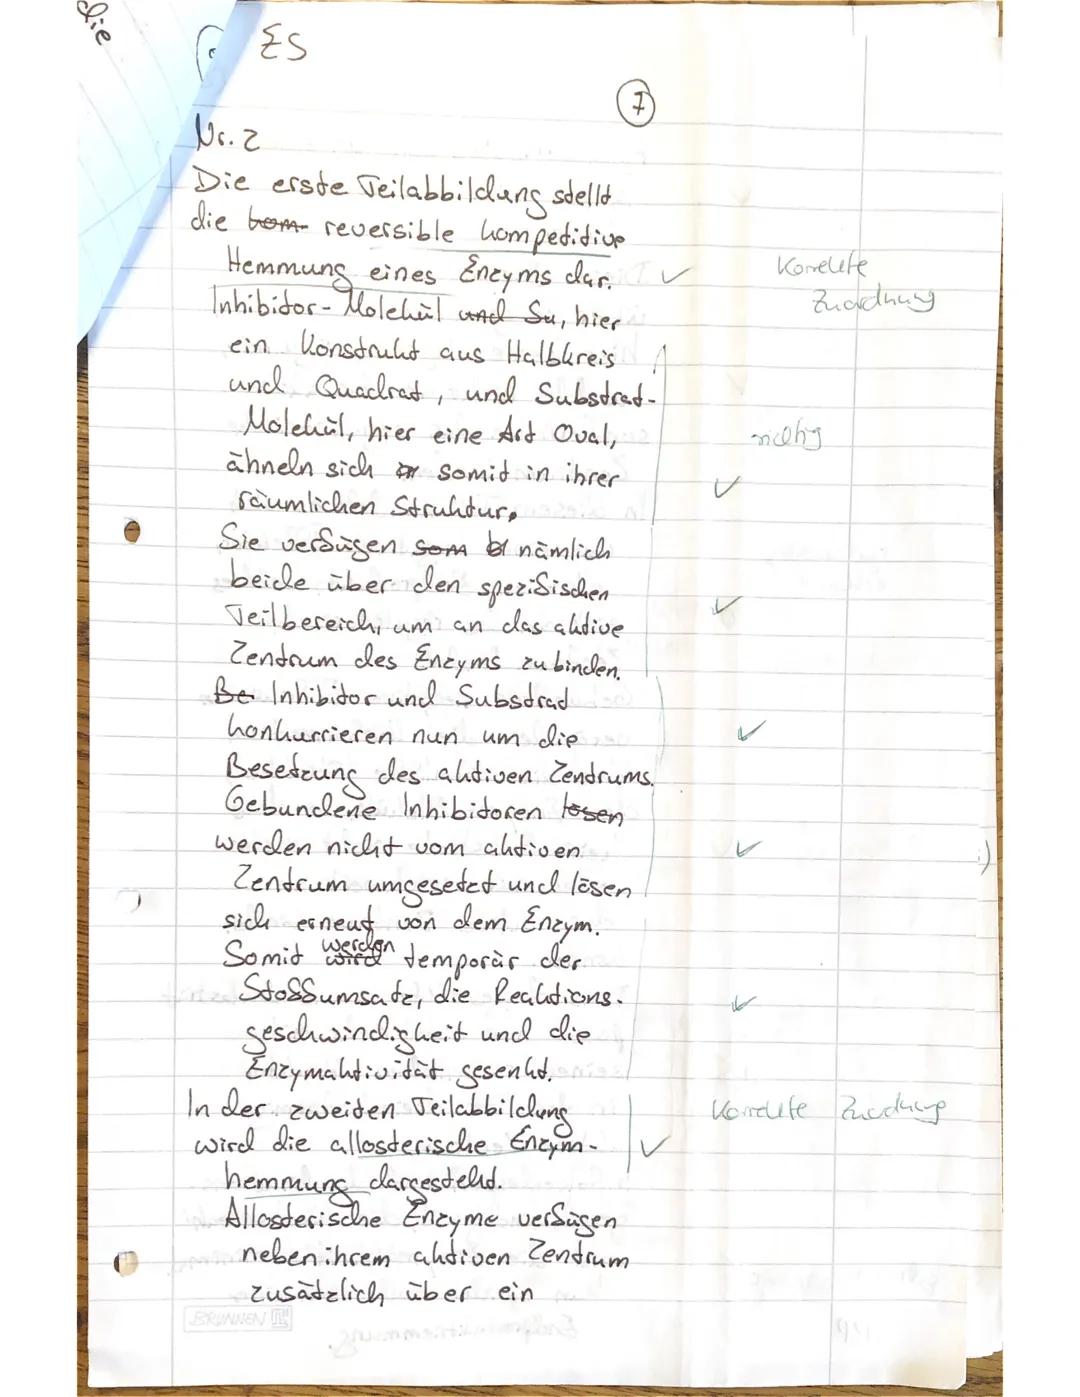 die
ES
7
Nr. 2
Die erste Teilabbildung stellt
die kom reversible kompetitive
Hemmung eines Enzyms dar.
Korrekte
Zuordnung
Inhibitor-Molekül und Su, hier
ein Konstrukt aus Halbkreis
und Quadrat, und Substrat-
Molekül, hier eine Art Oval,
richtig
ähneln sich somit in ihrer
räumlichen Struktur.
Sie verfügen som nämlich
beide über den spezifischen
Teilbereich, um an das aktive
Zentrum des Enzyms zu binden.
Be Inhibitor und Substrad
konkurrieren nun um die
Besetzung des aktiven Zentrums.
Gebundene Inhibitoren lösen
werden nicht vom aktiven
:)
Zentrum umgesetzt und lösen
sich erneut von dem Enzym.
Somit wird werden temporär der
Stoffumsatz, die Reaktions-
geschwindigkeit und die
Enzymaktivität gesenkt.
In der zweiten Teilabbildung
Korrekte Zuordnung
wird die allosterische Enzym-
hemmung dargestellt.
Allosterische Enzyme verfügen
neben ihrem aktiven Zentrum
zusätzlich über ein
BRUNNEN